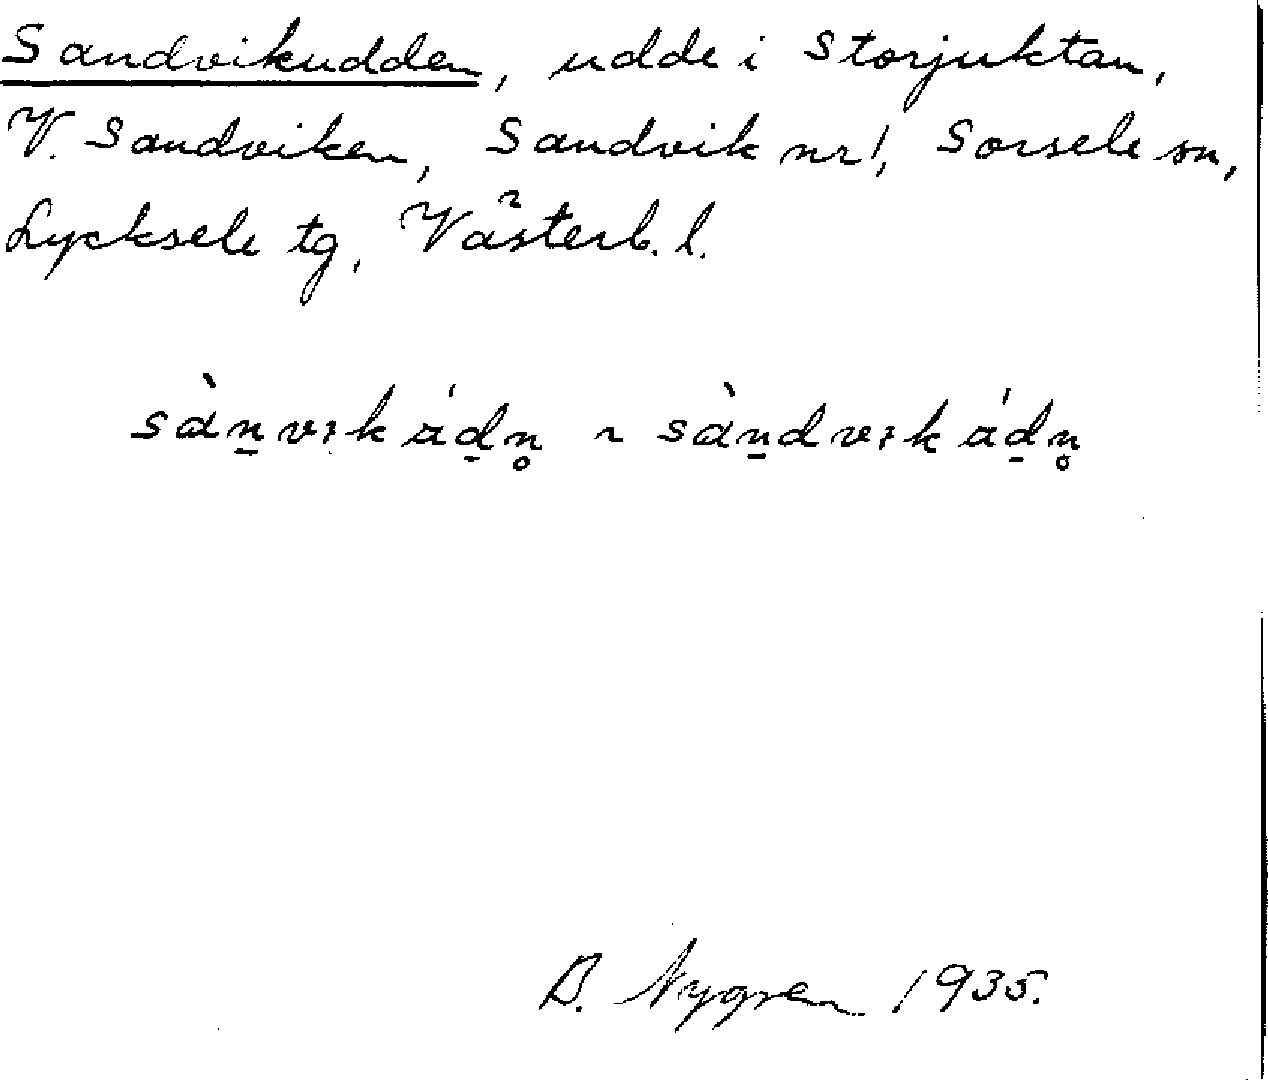 Sandvikudden, udde i Storjuktan,
V. Sandviken, Sandvik nr 1, Sorsele sn,
Lycksele tg, Västerb. l.
sàn̠vıkádn̥ ~ sàn̠dvıkádn̥
B. Nygren 1935.